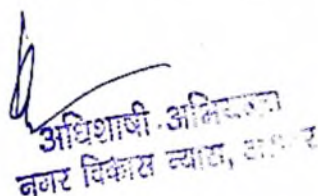 अधिशाषी अभियन्ता
नगर विकास न्यास,